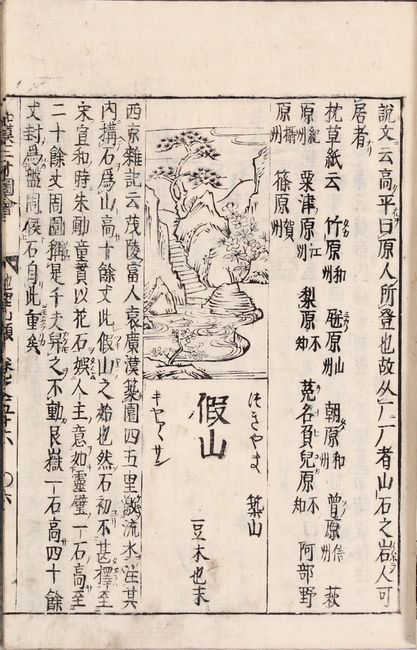 説文云高平曰原人所登也故从厂厂者山石之岩人可
居者
枕草紙云 竹原和州 原山州 朝原和州 曾原信州 萩
原紀州 粟津原江州 梨原不知 菟名負兒原不知 阿部野
原攝州 篠原賀州
つきやま 築山
假山
キヤア サン
豆木也末
西京雜記云茂陵富人袁廣漢築園四五里激流水注其
内搆石爲山高十餘丈此假山之始也然石初不甚擇至
宋宣和時朱勔童貫以花石娛人主意如靈璧一石高至
二十餘丈周圍稱是千夫舁之不動艮嶽一石高四十餘
丈封爲盤固侯石自此重矣
三才圖會 山類 五十六 〇六